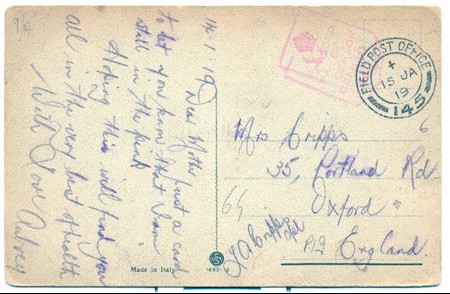 14.1.19
Dear Mother Just a card
to let you know that I am
still in the pink
Hoping this will find you
all in the very best of health
With Love Aubrey
FIELD POST OFFICE
15 JA
19
145
Mrs Cripps
35, Portland Rd
Oxford
England
Made in Italy